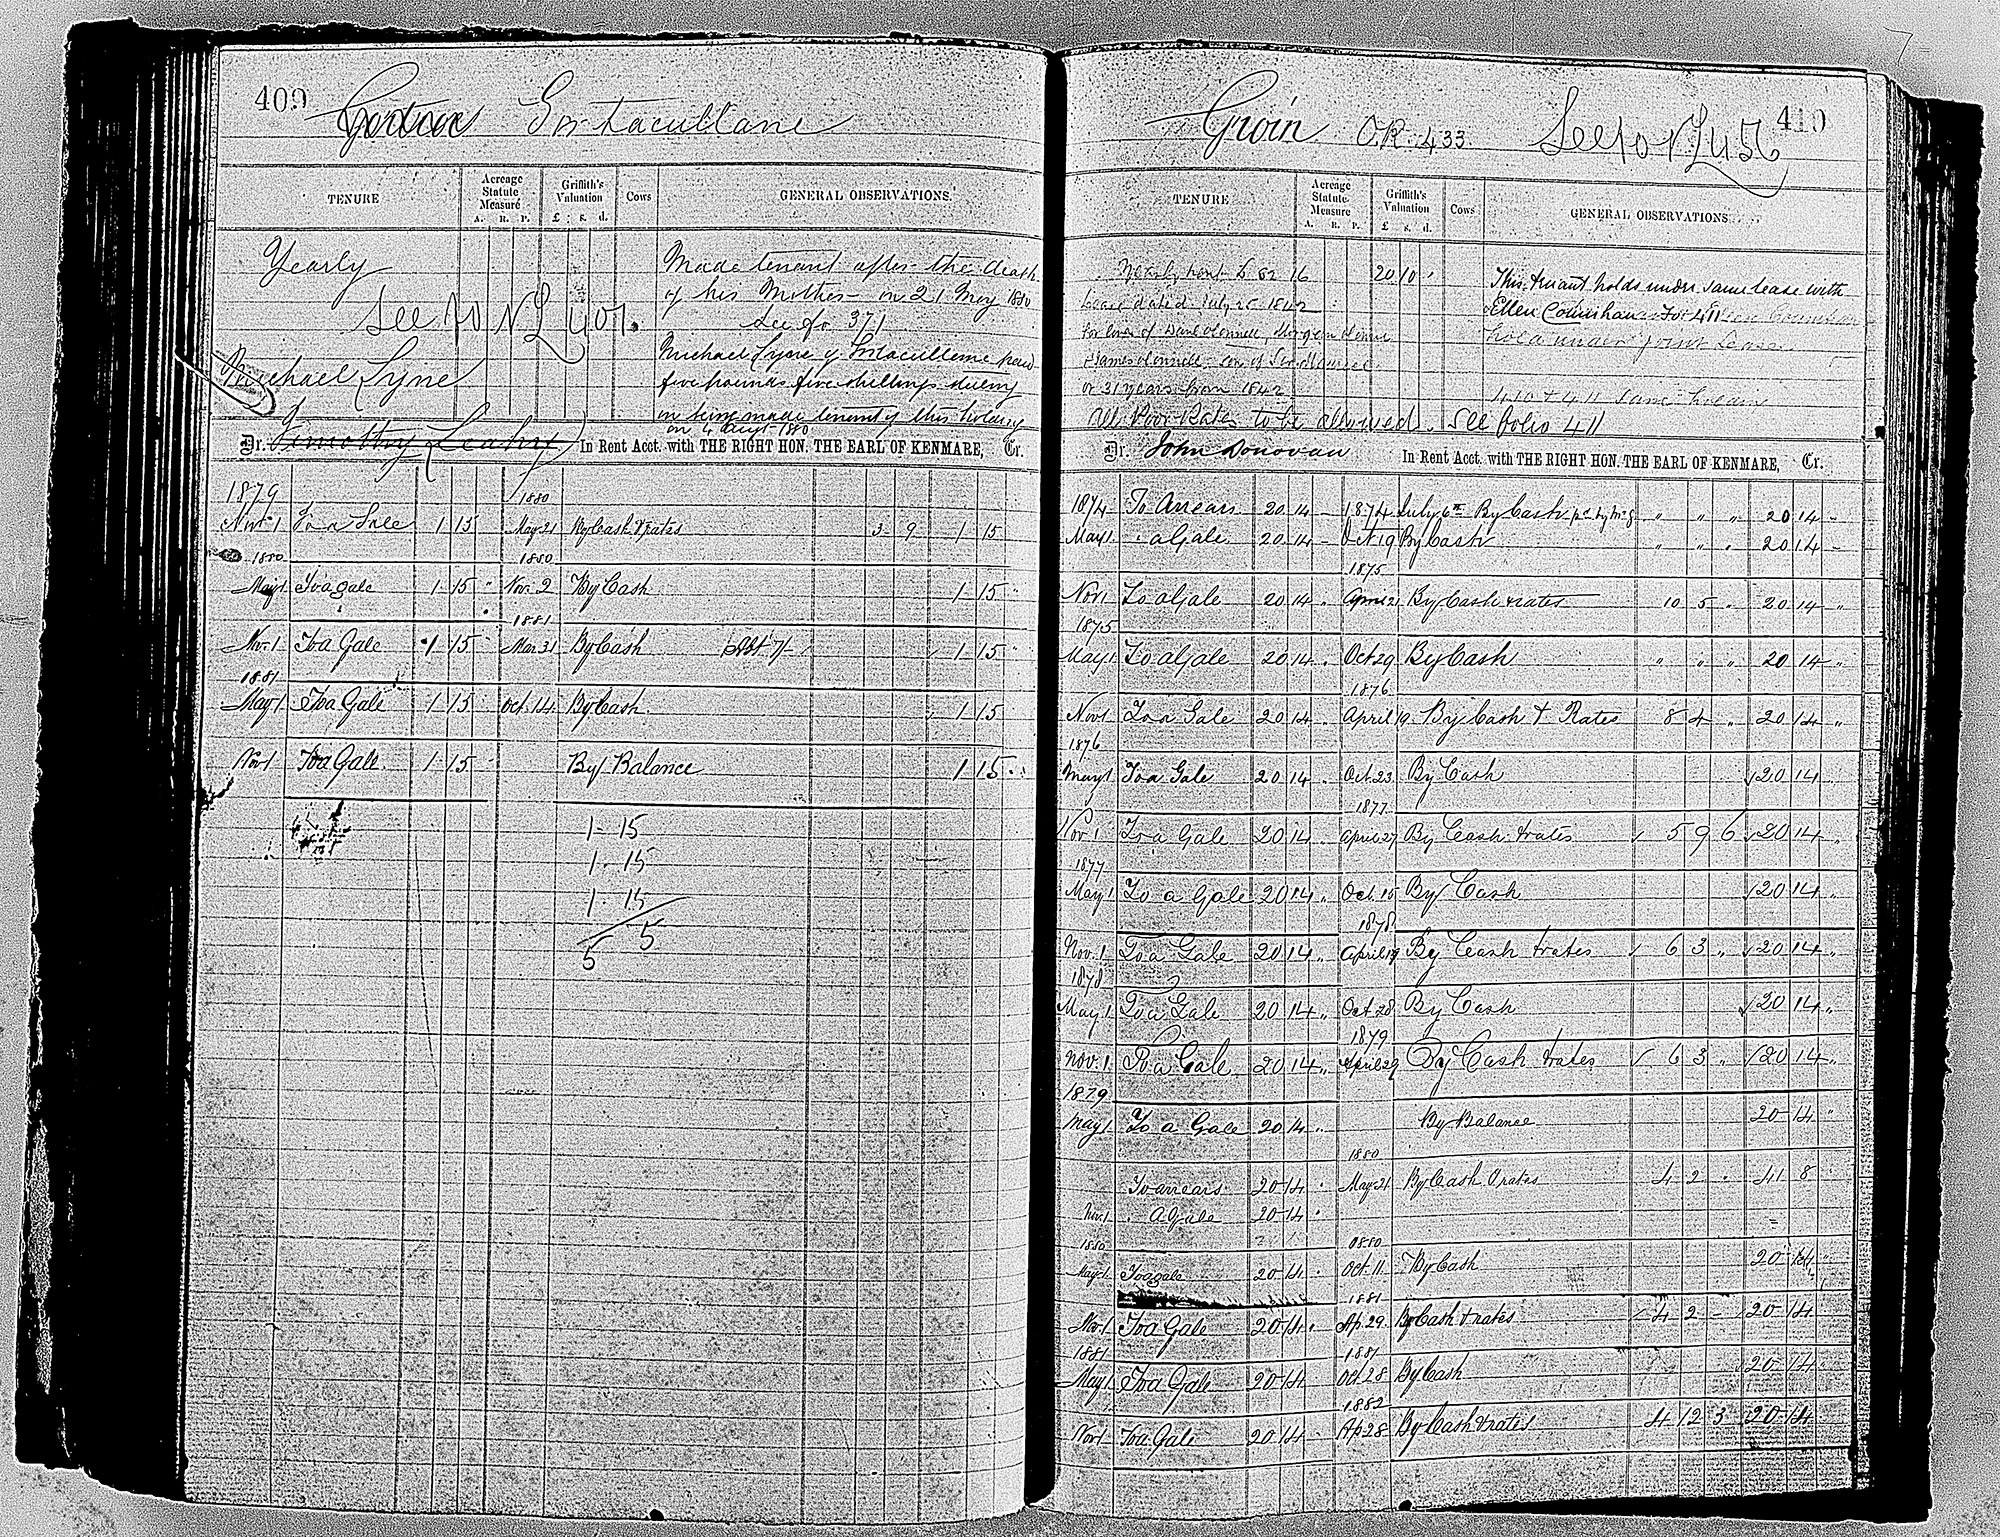 409
Gortacullane
TENURE
Acreage Statute Measure
A. R. P.
Griffith's Valuation
£ s. d.
Cows
GENERAL OBSERVATIONS.
Yearly
See fo NL 407.
Michael Lyne
Made tenant after the death
of his Mother on 21 May 1880
See fo 371
Michael Lyne of Gortacullane paid
five pounds five shillings
on being made tenant of this holding
on 4 Augt 1880
Dr. Timothy Leahy In Rent Acct. with THE RIGHT HON. THE EARL OF KENMARE, Cr.
1879 1880
Novr 1 To a Gale 1 15 May 21 By Cash & rates 3 9 1 15
1880 1880
May 1 To a gale 1 15 " Nov. 2 By Cash 1 15 "
1881
Nov. 1 To a Gale 1 15 Mar 31 By Cash 1 15 "
1881
May 1 To a Gale 1 15 Oct. 14 By Cash 1 15
Nov 1 To a Gale 1 15 By Balance 1 15
1 - 15
1 - 15
1 - 15
5 5
410
Groin O.R. 433 See fo NL 456
TENURE
Acreage Statute Measure
A. R. P.
Griffith's Valuation
£ s. d.
Cows
GENERAL OBSERVATIONS
Yearly rent £ 82 16 20 10 "
Lease dated July 25 1842
for lives of Danl OConnell, Morgan Connell
& James OConnell son of
or 31 years from 1842
All Poor Rates to be allowed. See folio 411
This tenant holds under same lease with
Ellen Counihan Fo 411
hold under joint Lease
410 & 411 Same
Dr. John Donovan In Rent Acct. with THE RIGHT HON. THE EARL OF KENMARE, Cr.
1874 To Arrears 20 14 - 1874 July 6th By Cash " " " 20 14 -
May 1 " a Gale 20 14 - Oct 19 By Cash " " " 20 14 -
1875
Nov 1 To a Gale 20 14 " April 21 By Cash & rates 10 5 " 20 14 "
1875
May 1 To a Gale 20 14 " Oct 29 By Cash " " " 20 14 "
1876
Nov 1 To a Gale 20 14 " April 19 By Cash & Rates 8 4 " 20 14 "
1876
May 1 To a Gale 20 14 " Oct. 23 By Cash 20 14
1877
Nov 1 To a Gale 20 14 " April 27 By Cash & rates 5 9 6 20 14 "
1877
May 1 To a Gale 20 14 " Oct. 15 By Cash 20 14 "
1878
Nov. 1 To a Gale 20 14 " April 19 By Cash & rates 6 3 " 20 14 "
1878
May 1 To a Gale 20 14 " Oct. 28 By Cash 20 14 "
1879
Nov. 1 To a Gale 20 14 " April 29 By Cash & rates 6 3 " 20 14 "
1879
May 1 To a Gale 20 14 " By Balance 20 14 "
1880
To arrears 20 14 " May 21 By Cash & rates 4 2 " 41 8
Nov 1 " a Gale 20 14 "
1880 1880
May 1 To a gale 20 14 " Oct. 11 By Cash 20 14
1881
Nov 1 To a Gale 20 14 " Ap. 29 By Cash & rates 4 2 - 20 14
1881 1881
May 1 To a Gale 20 14 Oct 28 By Cash 20 14
1882
Nov 1 To a Gale 20 14 Ap 28 By Cash & rates 4 12 3 20 14